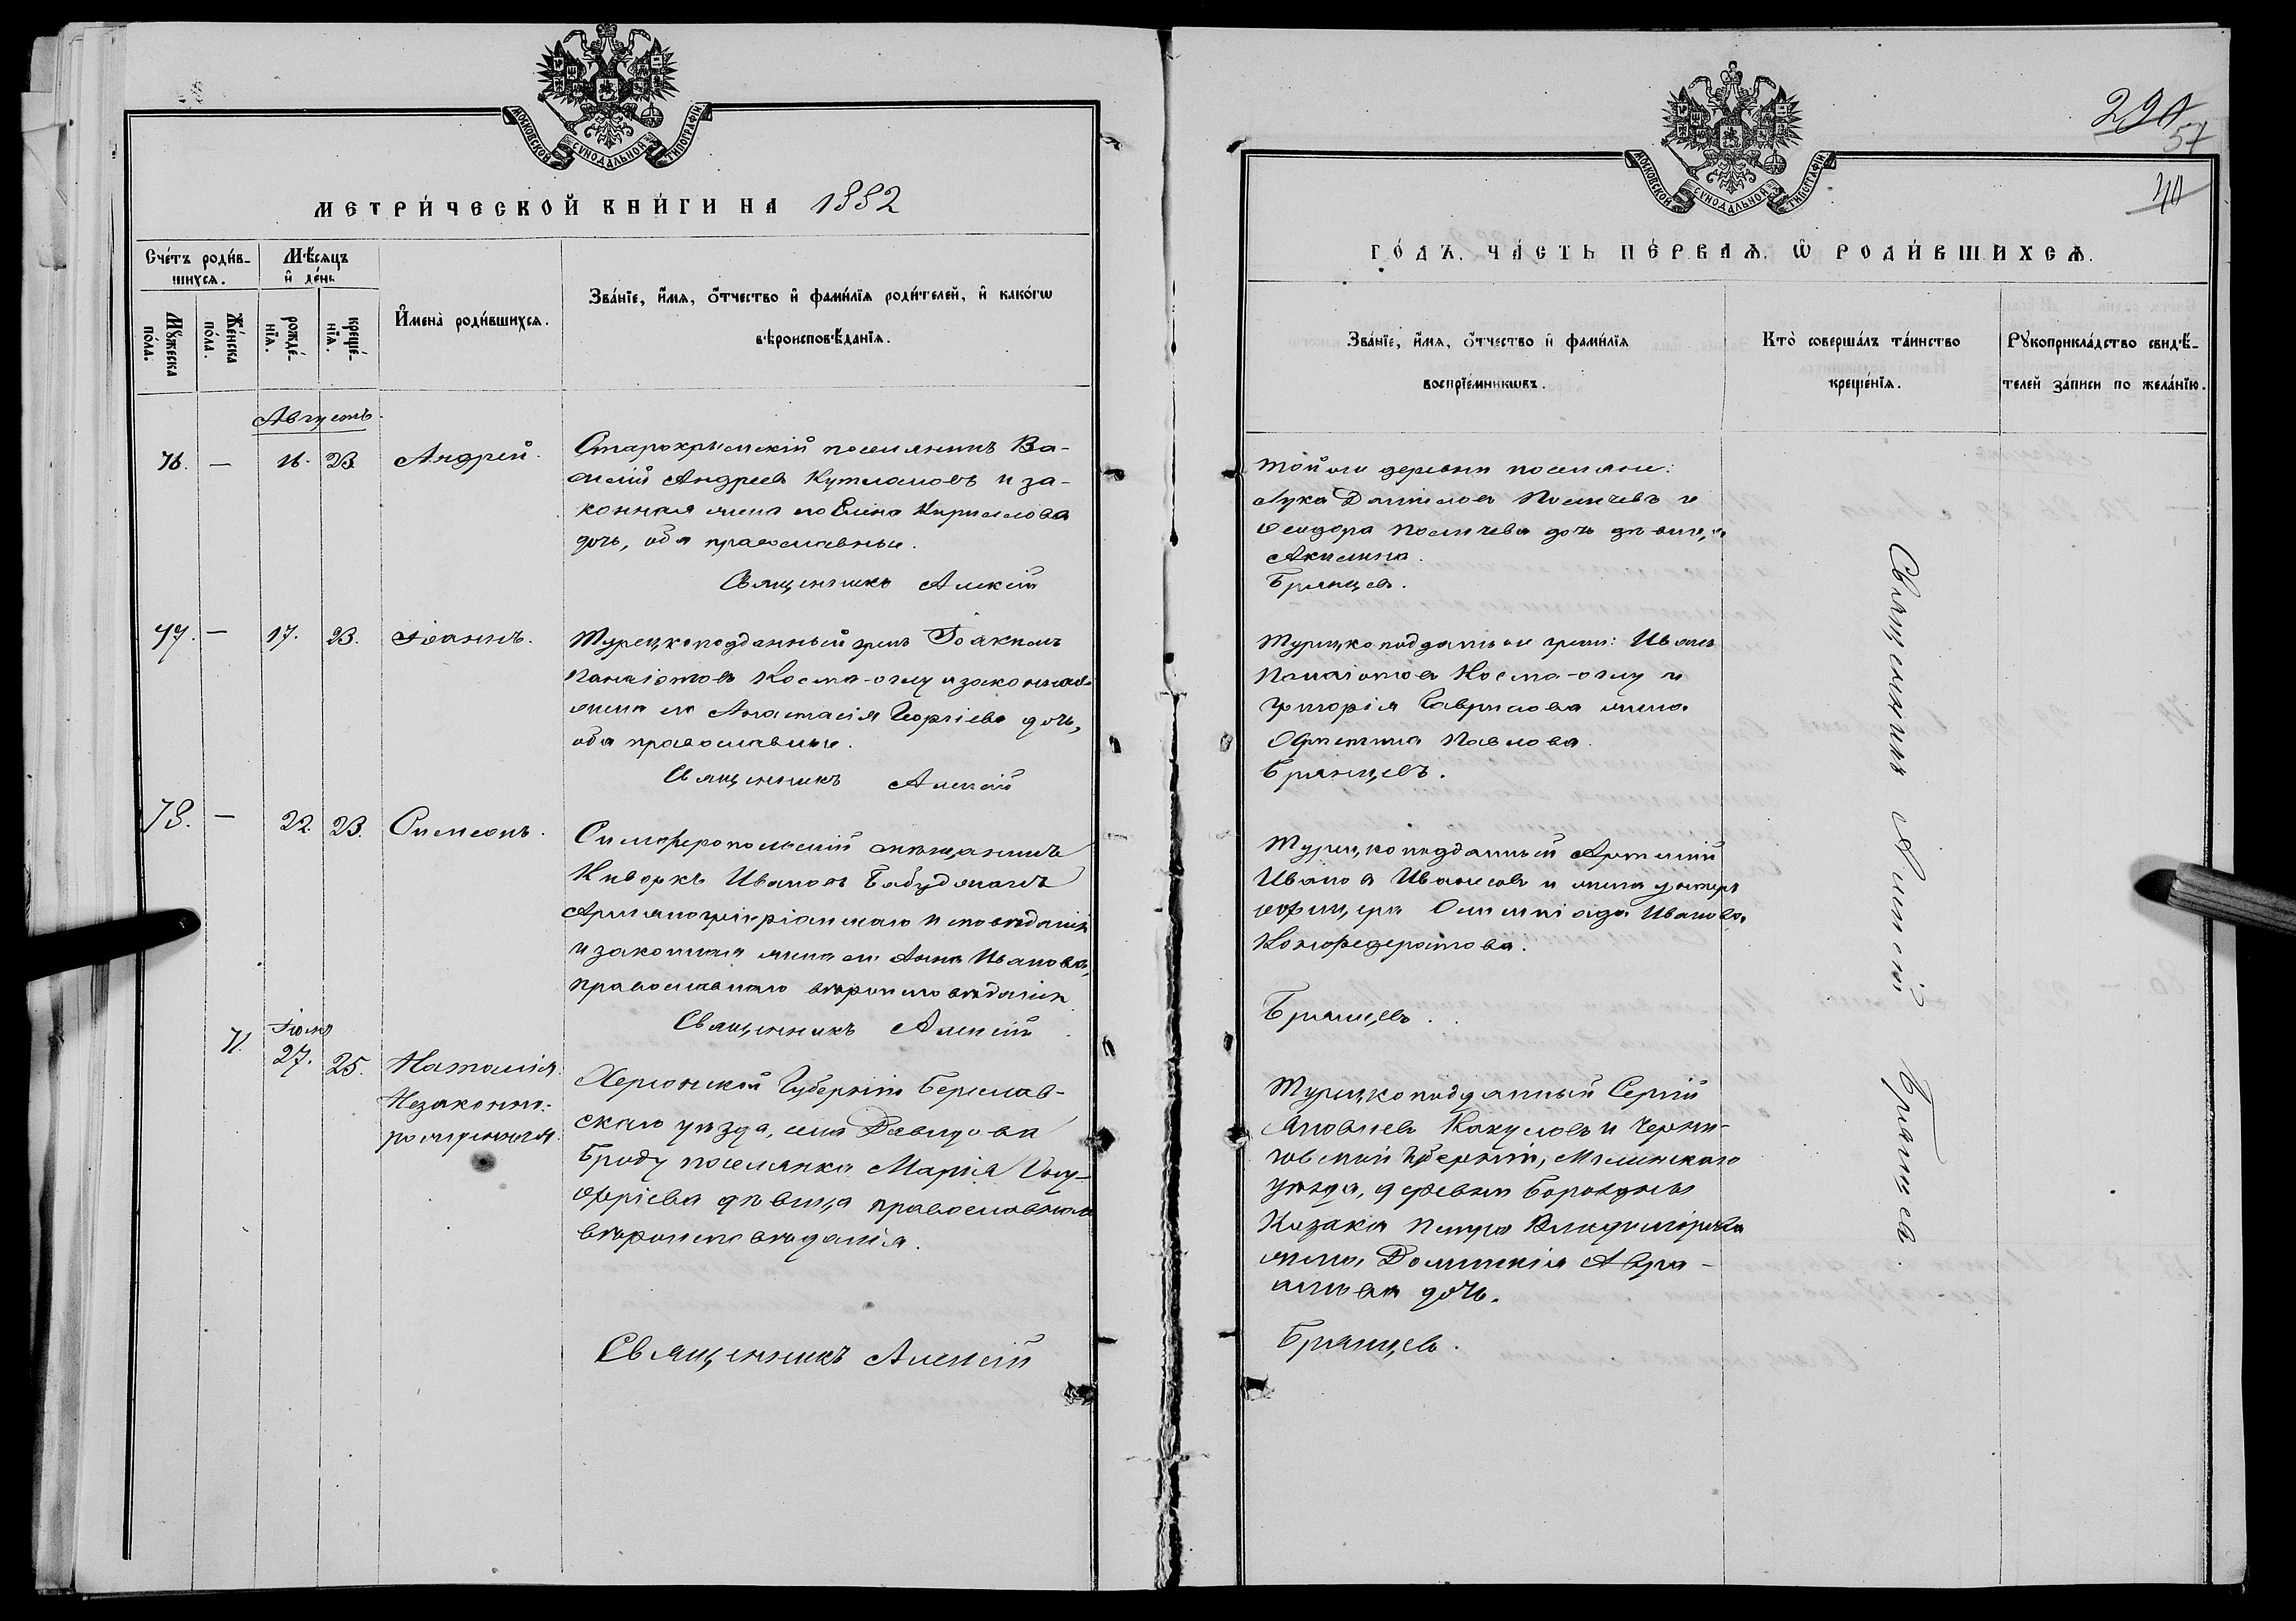 МОСКОВСКОЙ СѴНОДАЛЬНОЙ ТИПОГРАФІИ
МЕТРИ́ЧЕСКОЙ КНИ́ГИ НА 1882
Сче́тъ роди́в-
шихся.
Мѣ́сяцъ
и҆ де́нь
Мꙋ́жеска по́ла.
Же́нска по́ла.
рожде́-нїя.
креще́-нїя.
И҆́мена̀ роди́вшихся.
Зва́нїе, и҆́мя, о҆́тчество и҆ фамѝлїя роди́телей, и҆ како́гѡ
вѣроисповѣ́данїя.
Августъ.
76. — 16. 23. Андрей.
Старокрымскій поселянинъ Ва-
силій Андреевъ Кутламовъ и за-
конная жена его Елена Кириллова
дочь, оба православные.
Священникъ Алексій
77. — 17. 23. Іоаннъ.
Турецкоподданный грекъ Іоакимъ
Панаіотовъ Косма-оглу и законная
жена его Анастасія Георгіева дочь,
оба православные.
Священникъ Алексій
78. — 22. 23. Симеонъ.
Симферопольскій мѣщанинъ
Киворкъ Ивановъ Бабуджанъ
Армяногригоріанскаго исповѣданія
и законная жена его Анна Иванова,
православнаго вѣроисповѣданія
Священникъ Алексій
71. Іюля 27. 25. Наталія
Незаконно-
рожденная.
Херсонской Губерніи Берислав-
скаго уѣзда, села Давидова
Броду поселянка Марія Ону-
фріева дѣвица православнаго
вѣроисповѣданія.
Священникъ Алексій
290
57
40
МОСКОВСКОЙ СѴНОДАЛЬНОЙ ТИПОГРАФІИ
ГО́ДЪ. ЧА́СТЬ ПЕ́РВАѦ. Ѡ РОДИ́ВШИХСѦ.
Зва́нїе, и҆́мя, о҆́тчество и҆ фамѝлїя
воспрїе́мникѡвъ.
Кто̀ соверша́лъ та́инство
креще́нїя.
Рꙋкоприкла́дство свидѣ́-
телей за́писи по жела́нїю.
той же деревни поселяне:
Лука Даниловъ Поличевъ и
Ѳеодора Поличева дочь дѣвица
Акилина.
Брянцевъ.
Турецкоподданные греки: Иванъ
Панаіотовъ Косма-оглу и
Григорія Гаврилова жена
Христина Павлова.
Брянцевъ.
Турецкоподданный Артемій
Ивановъ Ивановъ и жена унтеръ
офицера Олимпіада Иванова
Конфедератова.
Брянцевъ.
Турецкоподданный Сергій
Яковлевъ Какуловъ и Черни-
говской Губерніи, Мглинскаго
уѣзда, деревни
Козака Петра Владимірова
жена Домникія Авра-
амова дочь.
Брянцевъ.
Священникъ Алексій Брянцевъ.